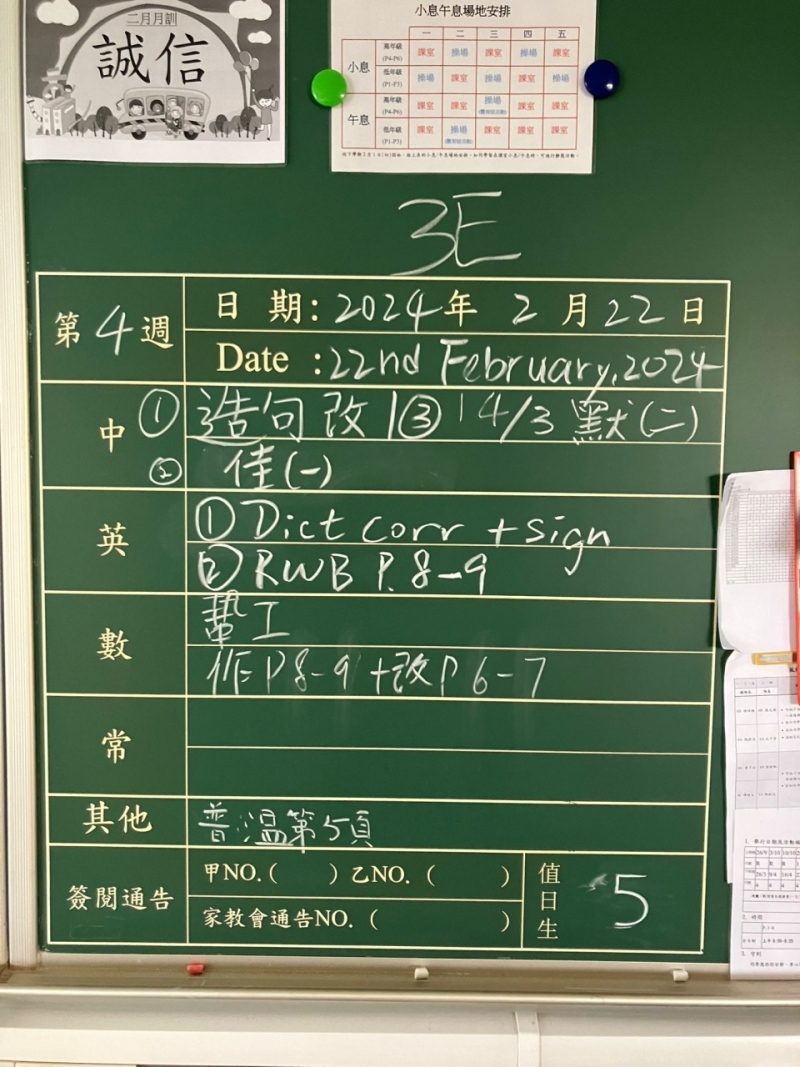 二月月訓
誠信
小息午息場地安排
一 二 三 四 五
小息 高年級 (P4-P6) 課室 操場 課室 操場 課室
低年級 (P1-P3) 操場 課室 操場 課室 操場
午息 高年級 (P4-P6) 課室 課室 操場 課室 課室
低年級 (P1-P3) 課室 操場 課室 課室 課室
3E
第4週 日期：2024年2月22日
Date : 22nd February, 2024
中 ① 造句改1 ③ 14/3 默(二)
② 佳(一)
英 ① Dict corr + sign
② RWB P. 8-9
數 幫工
作P8-9+改P6-7
常
其他 普溫第5頁
簽閱通告 甲NO.( ) 乙NO.( )
家教會通告NO.( )
值日生 5